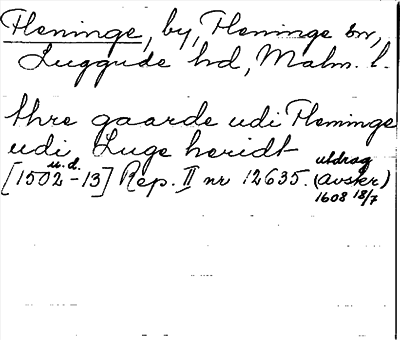 Fleninge, by, Fleninge sn,
Luggude hd, Malm. l.
thre gaarde udi Fleminge
udi Luge heridt
u.d.
[1502-13] Rep. II nr 12635. (Avskr)
utdrag
1608 18/7